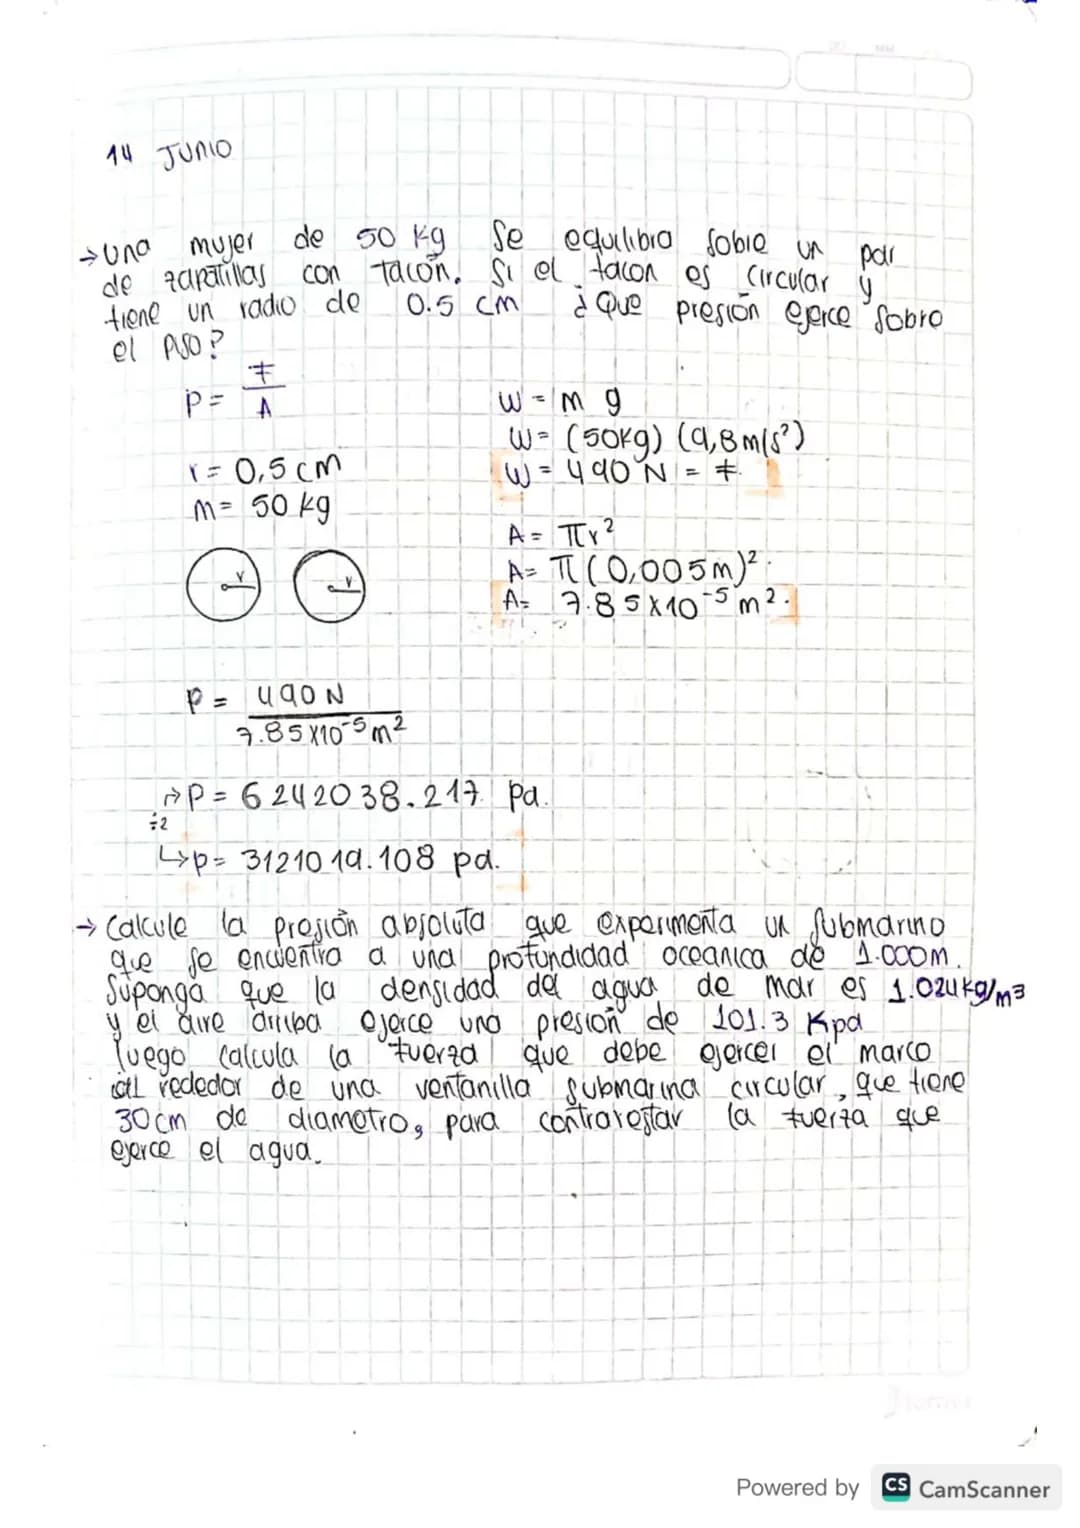 14 JUNIO
→ Una mujer de 50 kg Se equilibra sobre un par
de zapatillas con tacón. Si el tacon es circular y
tiene un radio de 0.5 cm ¿Que presión ejerce sobre
el piso?
P = F/A
W = m g
W = (50kg) (9,8 m/s²)
r = 0,5 cm
W = 490 N = F.
m = 50 kg
A = πr²
r r
A = π (0,005m)².
A = 7.85x10⁻⁵ m².
P = 490 N
7.85x10⁻⁵ m²
→P = 6242038.217 pa.
÷2
↳p = 3121019.108 pa.
→ Calcule la presión absoluta que experimenta un submarino
que se encuentra a una profundidad oceanica de 1.000m.
Suponga que la densidad del agua de mar es 1.024kg/m3
y el aire arriba ejerce una presion de 101.3 Kpa
luego calcula la fuerza que debe ejercer el marco
al rededor de una ventanilla submarina circular, que tiene
30cm de diametro, para contrarestar la fuerza que
ejerce el agua.
Powered by CS CamScanner